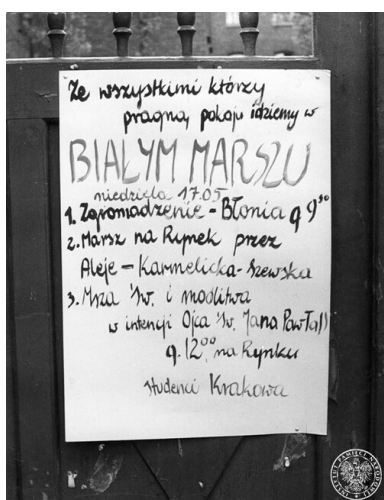 Ze wszystkimi którzy
pragną pokoju idziemy w
BIAŁYM MARSZU
niedziela 17.05
1. Zgromadzenie - Błonia g 9³⁰
2. Marsz na Rynek przez
Aleje - Karmelicka - Szewska
3. Msza św. i modlitwa
w intencji Ojca Św. Jana Pawła II
g. 12⁰⁰ na Rynku
studenci Krakowa
INSTYTUT PAMIĘCI NARODOWEJ